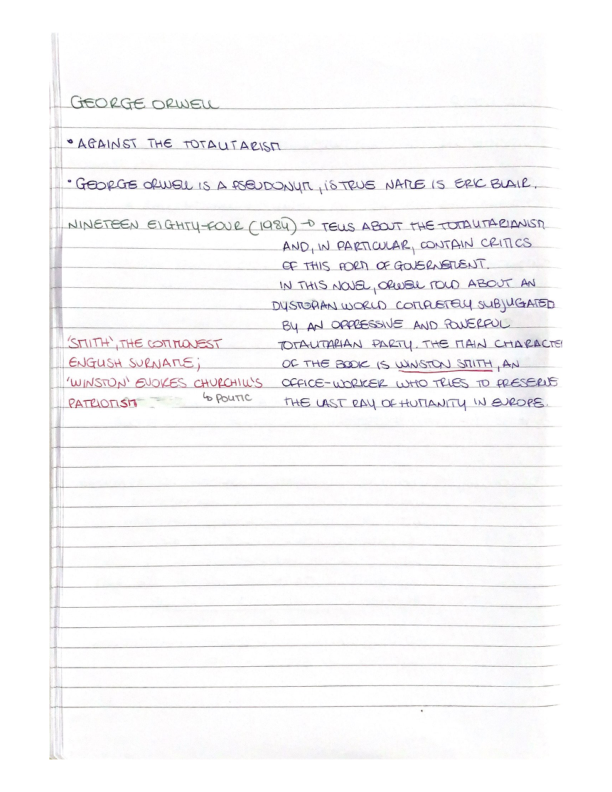 GEORGE ORWELL
• AGAINST THE TOTALITARISM
• GEORGE ORWELL IS A PSEUDONYM, IS TRUE NAME IS ERIC BLAIR.
NINETEEN EIGHTY-FOUR (1984) → TELLS ABOUT THE TOTALITARIANISM
AND, IN PARTICULAR, CONTAIN CRITICS
OF THIS FORM OF GOVERNEMENT.
IN THIS NOVEL, ORWELL TOLD ABOUT AN
DYSTOPIAN WORLD COMPLETELY SUBJUGATED
BY AN OPPRESSIVE AND POWERFUL
TOTALITARIAN PARTY. THE MAIN CHARACTE
OF THE BOOK IS WINSTON SMITH, AN
OFFICE-WORKER WHO TRIES TO PRESERVE
THE LAST RAY OF HUMANITY IN EUROPE.
'SMITH', THE COMMONEST
ENGLISH SURNAME;
'WINSTON' EVOKES CHURCHILL'S
PATRIOTISM
↳ POLITIC